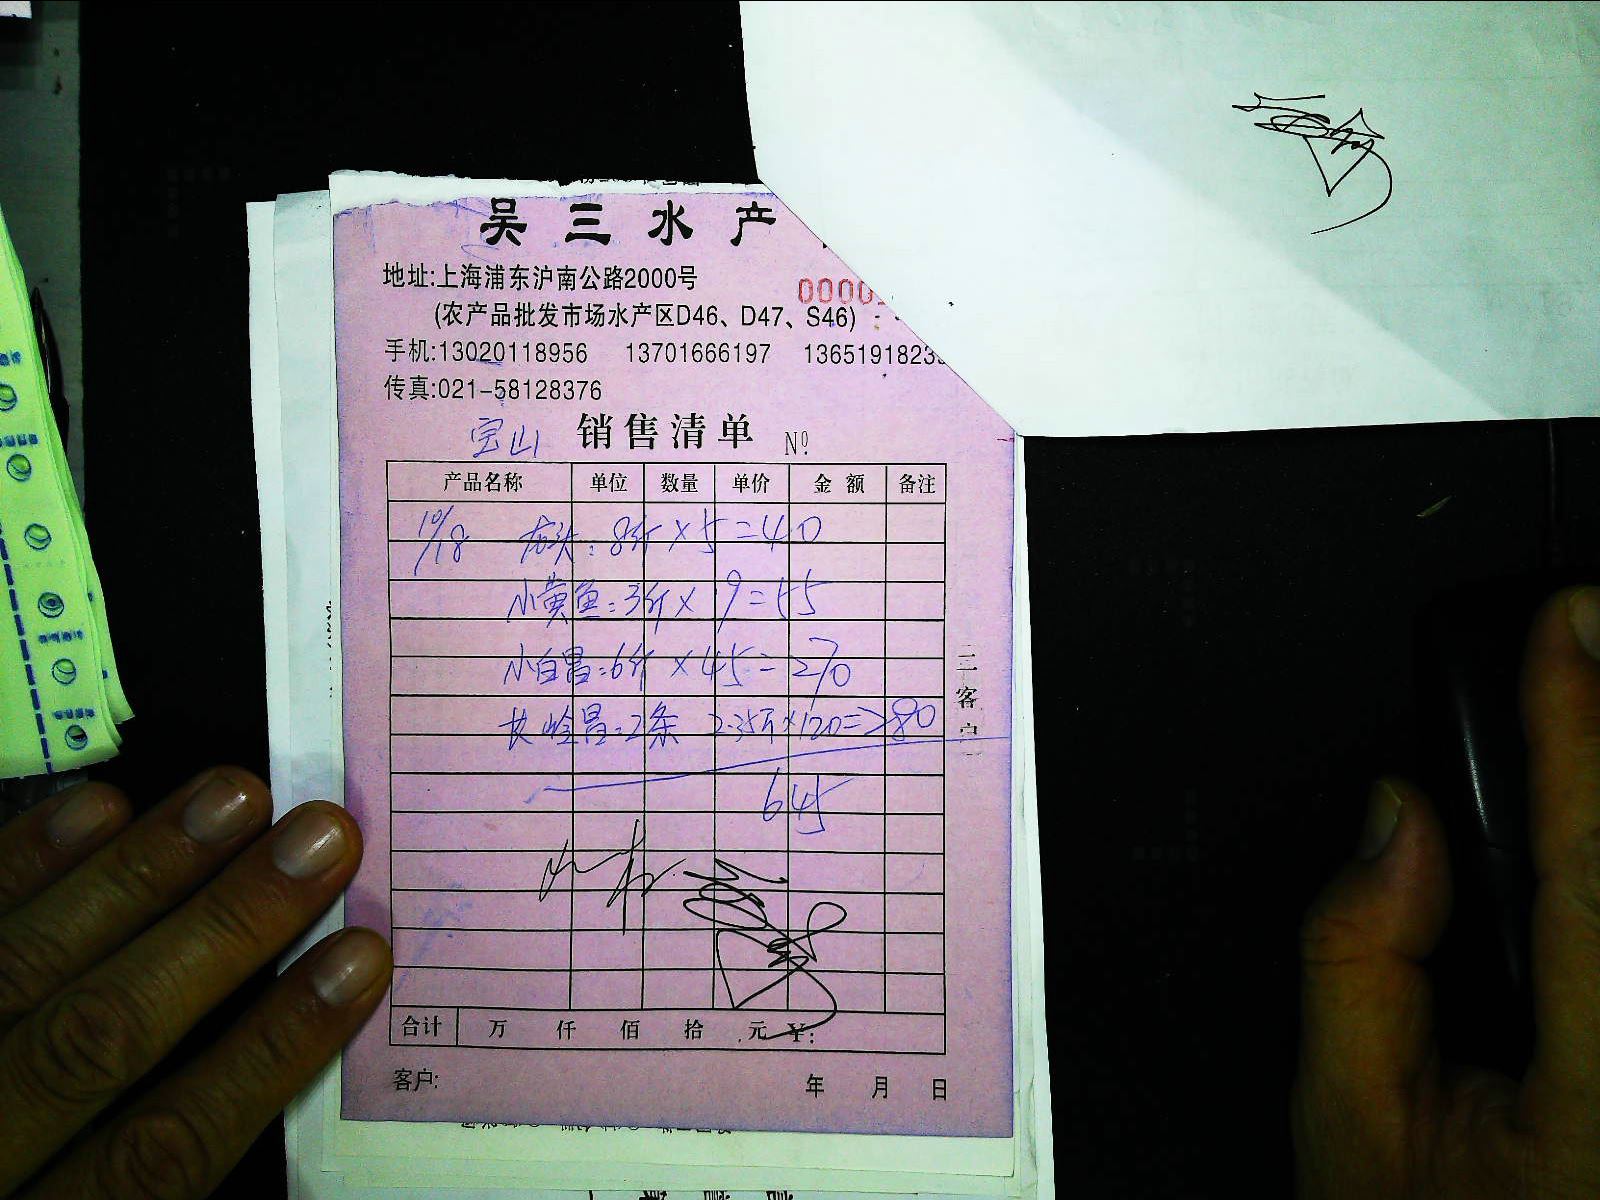 吴三水产
地址:上海浦东沪南公路2000号
0000
(农产品批发市场水产区D46、D47、S46)
手机:13020118956 13701666197 1365191823
传真:021-58128376
宝山 销售清单 Nº
产品名称 单位 数量 单价 金额 备注
10/18 龙头:8斤×5=40
小黄鱼:3斤× 9=55
小白昌:6斤×45=270
长岭昌:2条 2.35斤×120=280
645
三客户
合计 万 仟 佰 拾 元 ¥:
客户: 年 月 日